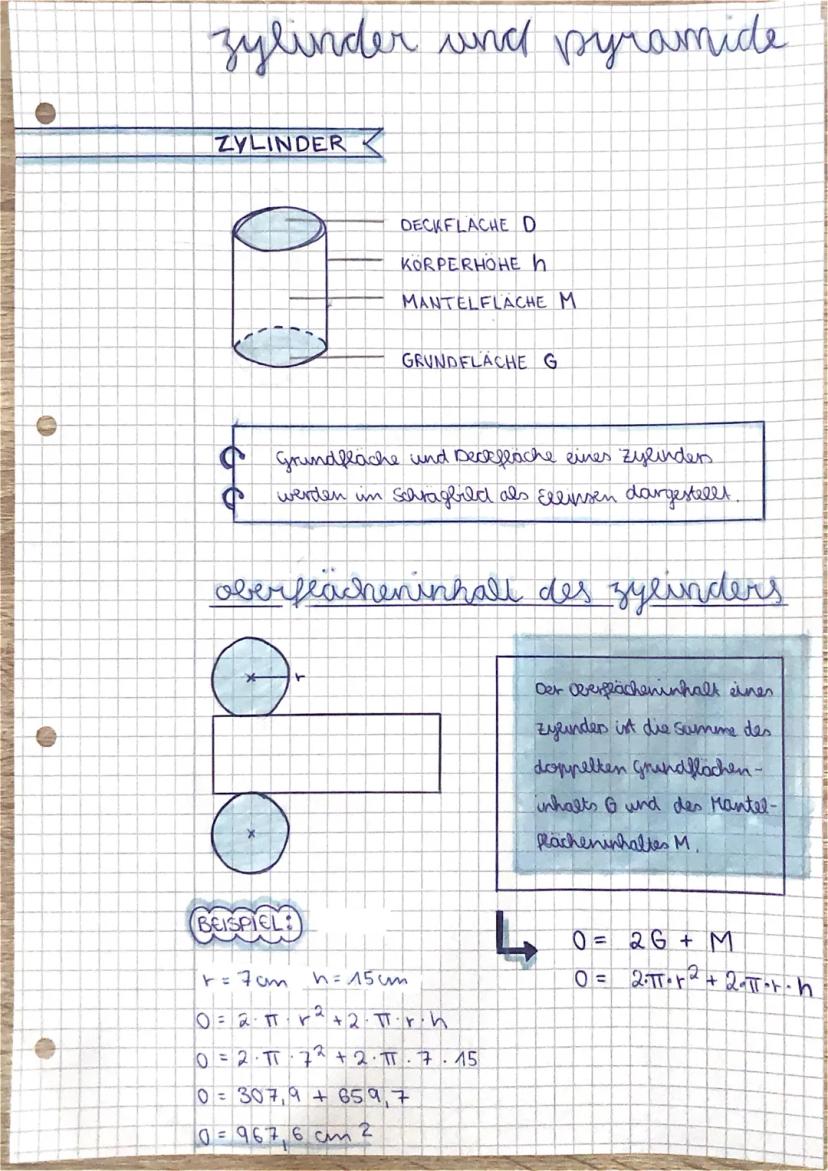 zylinder und pyramide
ZYLINDER
DECKFLÄCHE D
KÖRPERHÖHE h
MANTELFLÄCHE M
GRUNDFLÄCHE G
Grundfläche und Deckfläche eines Zylinders
werden im Schrägbild als Ellipsen dargestellt.
oberflächeninhalt des zylinders
r
Der Oberflächeninhalt eines
Zylinders ist die Summe des
doppelten Grundflächen-
inhalts G und des Mantel-
flächeninhaltes M.
O = 2G + M
O = 2·π·r² + 2·π·r·h
BEISPIEL:
r = 7cm h = 15cm
O = 2·π·r² + 2·π·r·h
O = 2·π·7² + 2·π·7·15
O = 307,9 + 659,7
O = 967,6 cm²